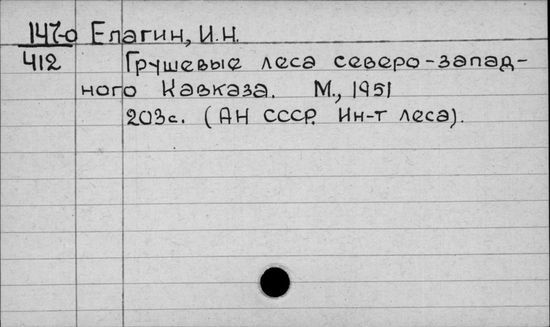 147-0 Елагин, И.Н.
412 Грушевые леса северо-запад-
ного Кавказа. М., 1951
203с. (АН СССР. Ин-т леса).